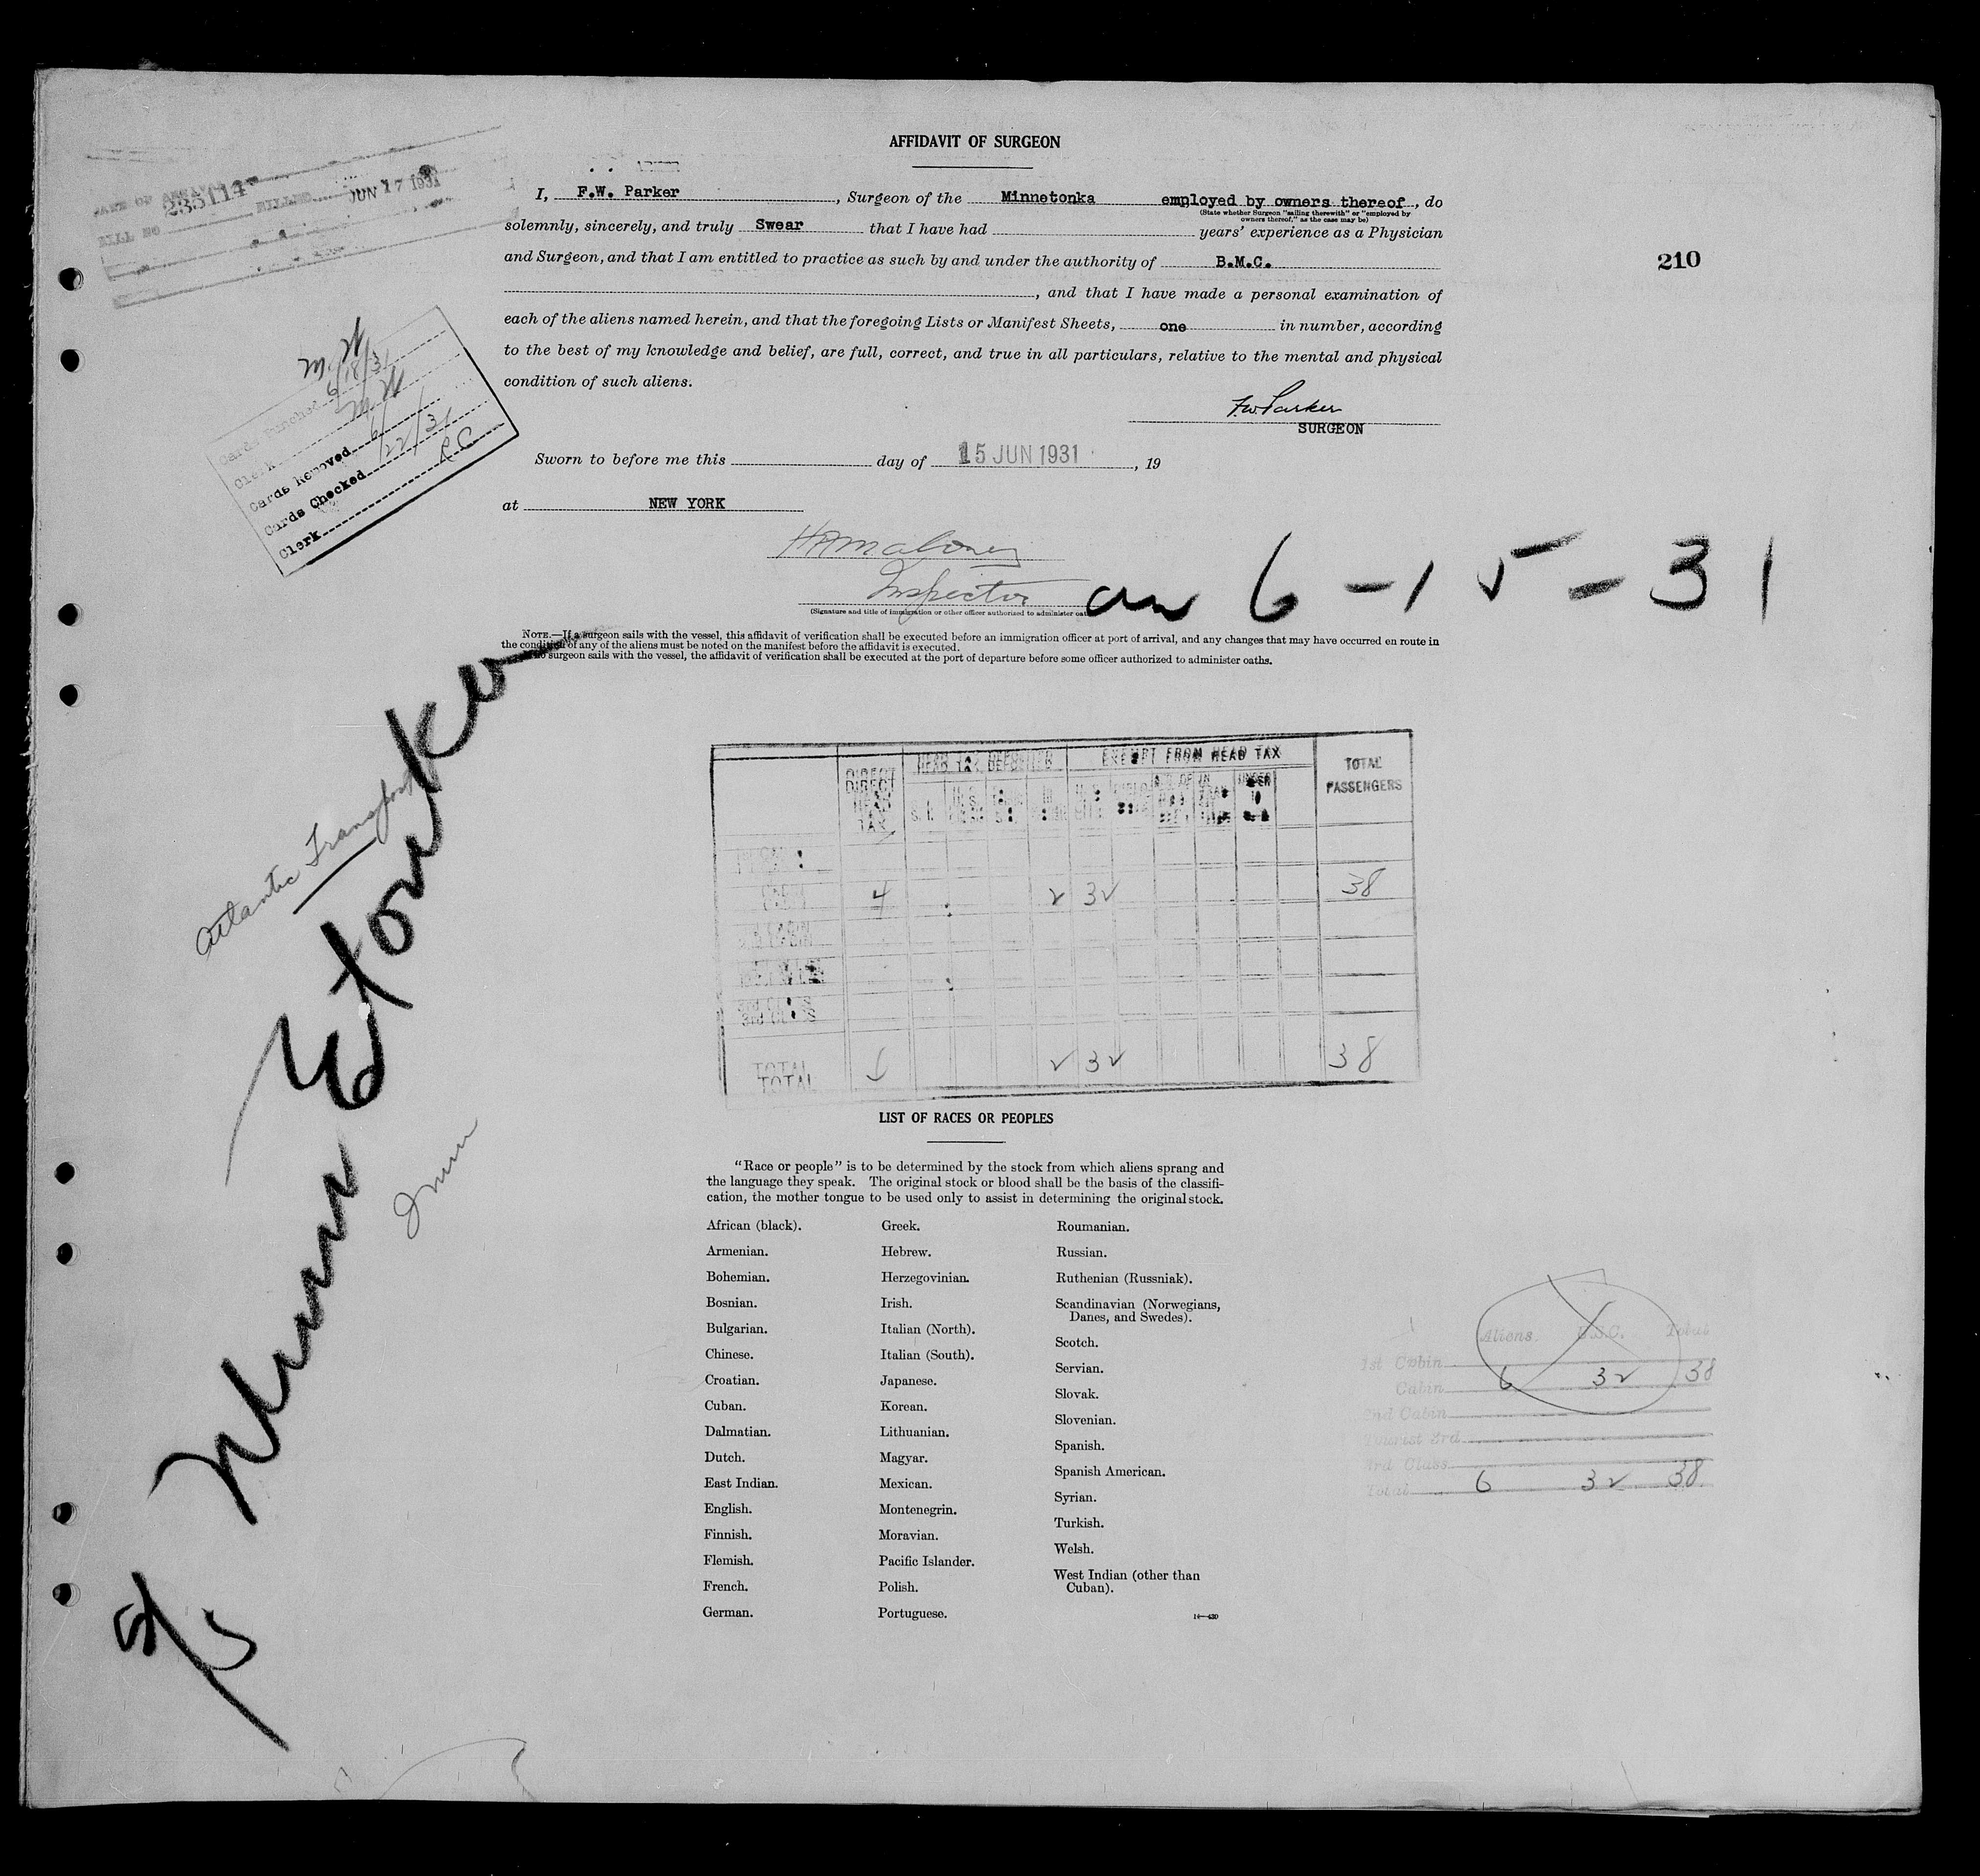 AFFIDAVIT OF SURGEON
I, F.W. Parker, Surgeon of the Minnetonka employed by owners thereof, do
(State whether Surgeon "sailing therewith" or "employed by
owners thereof," as the case may be)
solemnly, sincerely, and truly Swear that I have had years' experience as a Physician
and Surgeon, and that I am entitled to practice as such by and under the authority of B.M.C.
, and that I have made a personal examination of
each of the aliens named herein, and that the foregoing Lists or Manifest Sheets, one in number, according
to the best of my knowledge and belief, are full, correct, and true in all particulars, relative to the mental and physical
condition of such aliens.
F.W. Parker
SURGEON
Sworn to before me this day of 15 JUN 1931, 19
at NEW YORK
Inspector
(Signature and title of immigration or other officer authorized to administer
NOTE.—If a surgeon sails with the vessel, this affidavit of verification shall be executed before an immigration officer at port of arrival, and any changes that may have occurred en route in
the condition of any of the aliens must be noted on the manifest before the affidavit is executed.
surgeon sails with the vessel, the affidavit of verification shall be executed at the port of departure before some officer authorized to administer oaths.
210
6-15-31
JUN 17 1931
BILL NO
Cards Punched
Clerk
Cards Removed
Cards Checked 6/22/31
Clerk
Atlantic Transport
Minnetonka
DIRECT HEAD TAX
HEAD TAX DEPOSITED
EXEMPT FROM HEAD TAX
TOTAL
PASSENGERS
4 2 32 38
3rd CLASS
TOTAL 2 32 38
LIST OF RACES OR PEOPLES
"Race or people" is to be determined by the stock from which aliens sprang and
the language they speak. The original stock or blood shall be the basis of the classifi-
cation, the mother tongue to be used only to assist in determining the original stock.
African (black).
Armenian.
Bohemian.
Bosnian.
Bulgarian.
Chinese.
Croatian.
Cuban.
Dalmatian.
Dutch.
East Indian.
English.
Finnish.
Flemish.
French.
German.
Greek.
Hebrew.
Herzegovinian.
Irish.
Italian (North).
Italian (South).
Japanese.
Korean.
Lithuanian.
Magyar.
Mexican.
Montenegrin.
Moravian.
Pacific Islander.
Polish.
Portuguese.
Roumanian.
Russian.
Ruthenian (Russniak).
Scandinavian (Norwegians,
Danes, and Swedes).
Scotch.
Servian.
Slovak.
Slovenian.
Spanish.
Spanish American.
Syrian.
Turkish.
Welsh.
West Indian (other than
Cuban).
Aliens. U.S.C. Total
1st Cabin
Cabin 6 32 38
2nd Cabin
Tourist 3rd
3rd Class
Total 6 32 38